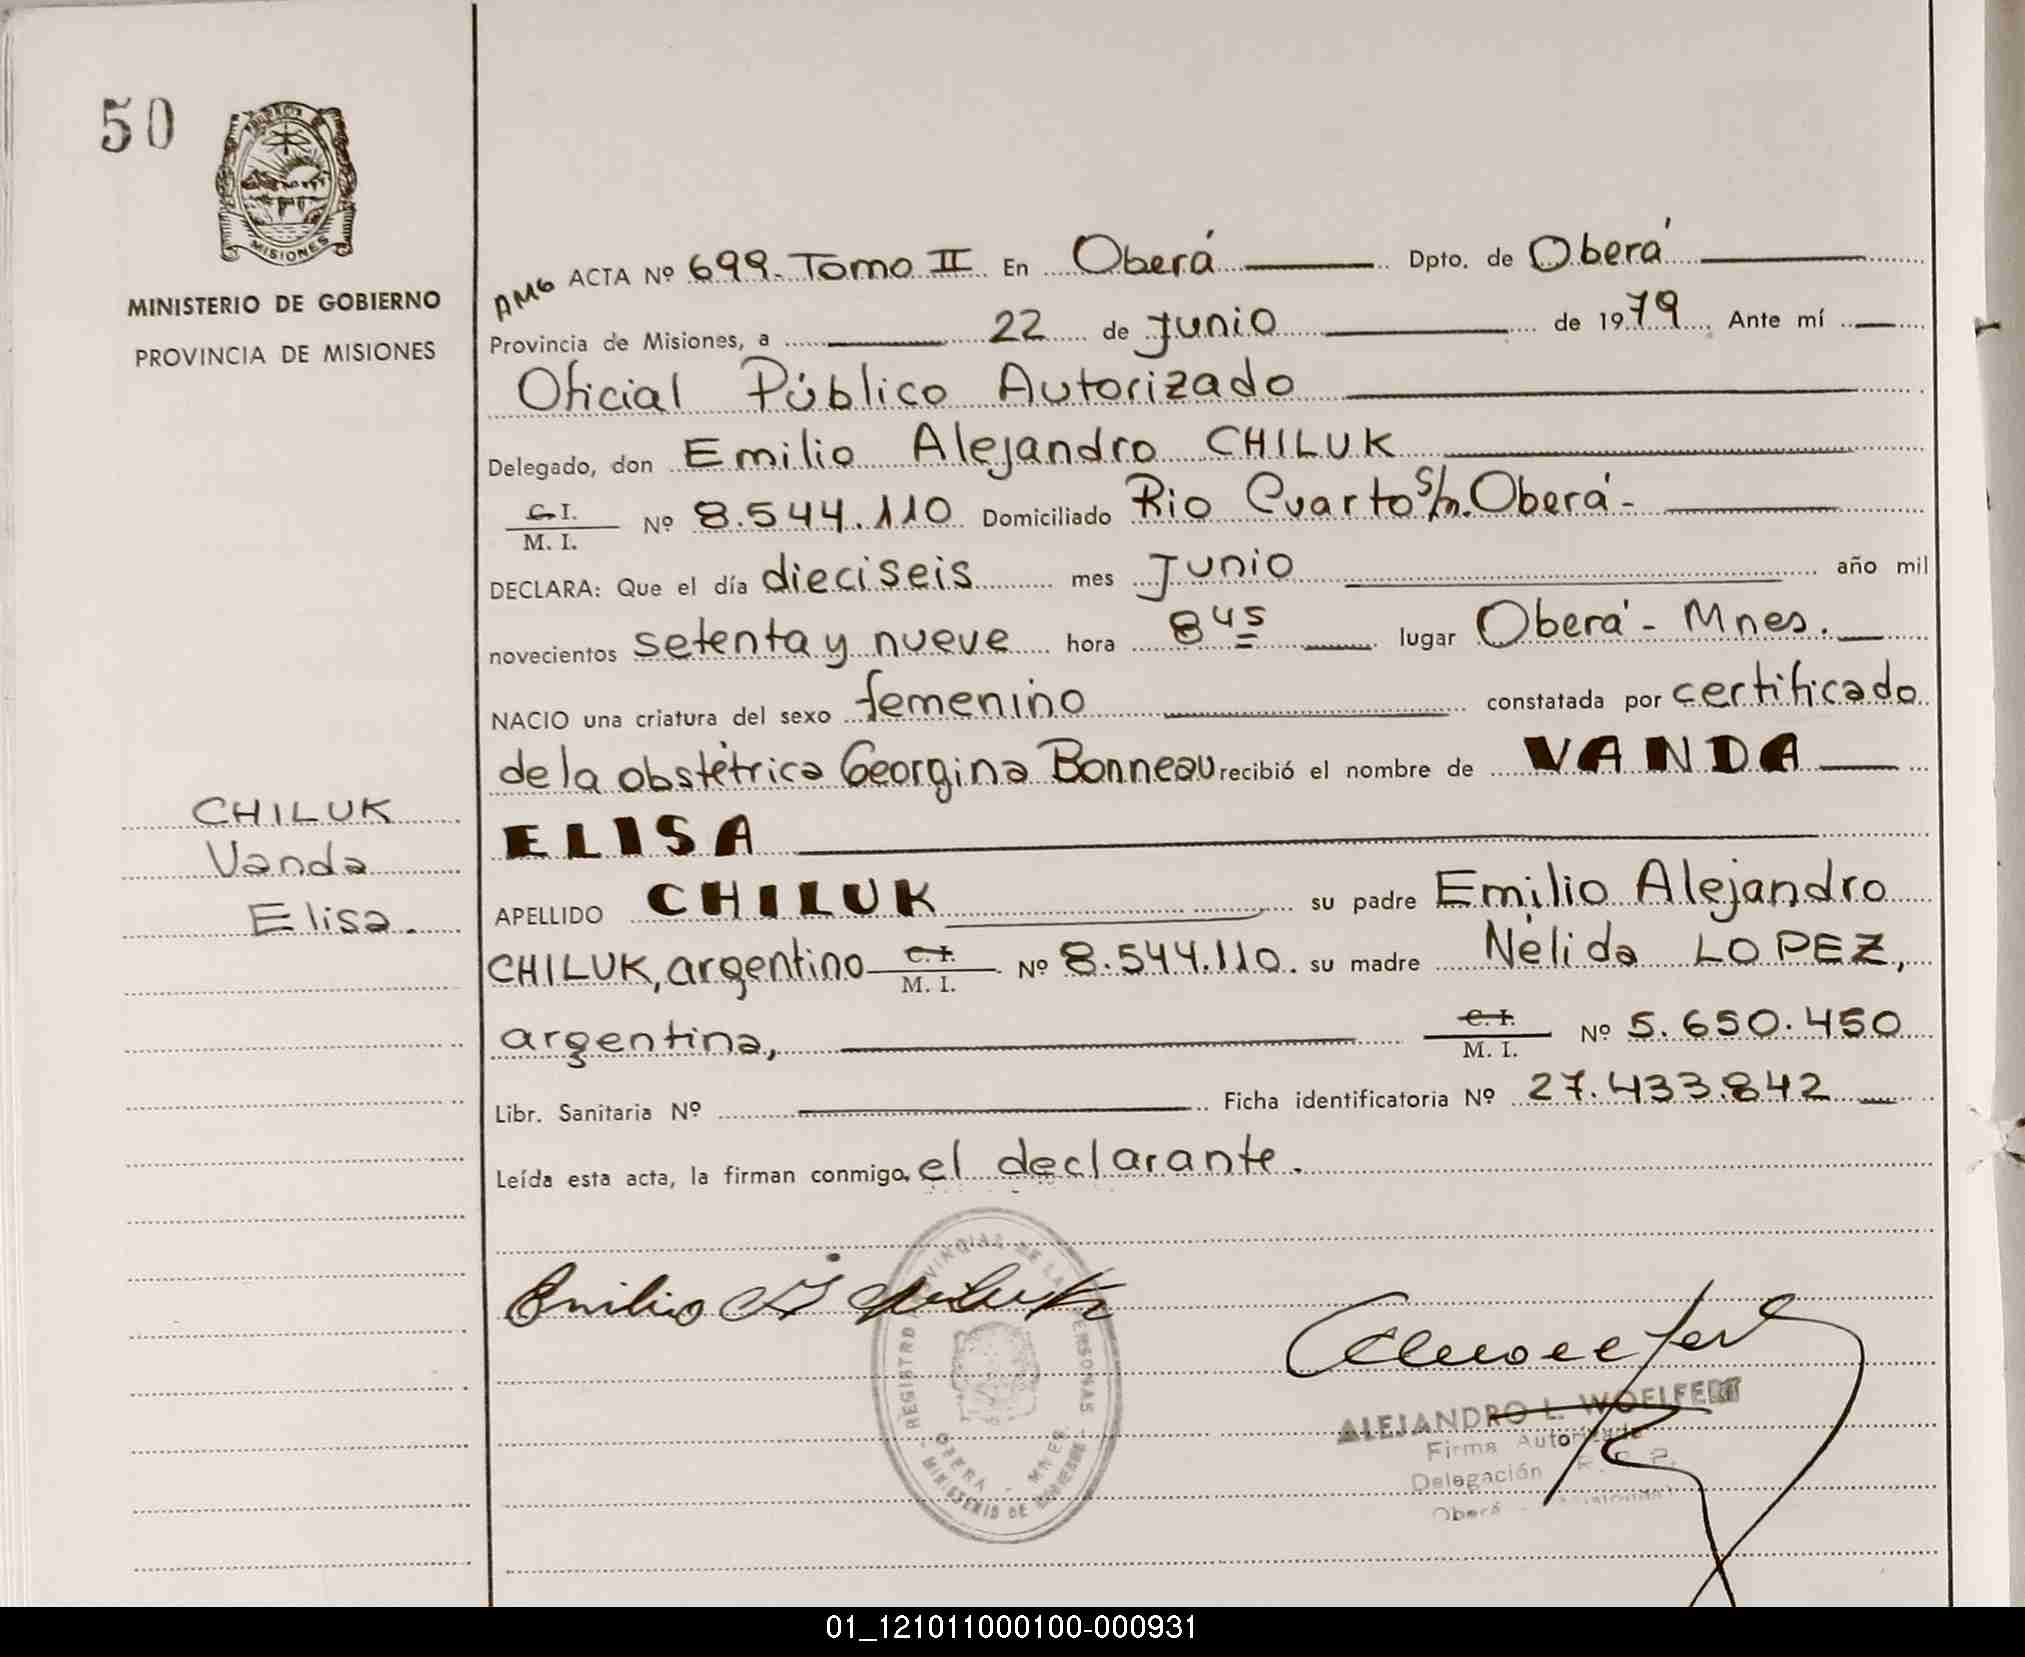 50
MISIONES
MINISTERIO DE GOBIERNO
PROVINCIA DE MISIONES
AMG ACTA Nº 699. Tomo II En Oberá Dpto. de Oberá
Provincia de Misiones, a 22 de Junio de 1979 Ante mí
Oficial Público Autorizado
Delegado, don Emilio Alejandro CHILUK
C.I.
M. I. Nº 8.544.110 Domiciliado Rio Cuarto s/n. Oberá-
DECLARA: Que el día dieciseis mes Junio año mil
novecientos setenta y nueve hora 8 45 lugar Oberá - Mnes.
NACIO una criatura del sexo femenino constatada por certificado
de la obstétrica Georgina Bonneau recibió el nombre de VANDA
ELISA
CHILUK
Vanda
Elisa.
APELLIDO CHILUK su padre Emilio Alejandro
CHILUK, argentino C.I. M. I. Nº 8.544.110. su madre Nélida LOPEZ,
argentina, C.I. M. I. Nº 5.650.450
Libr. Sanitaria Nº Ficha identificatoria Nº 27.433.842
Leída esta acta, la firman conmigo, el declarante.
Emilio A Chiluk
REGISTRO PROVINCIAL DE LAS PERSONAS
OBERÁ - MNES.
MINISTERIO DE GOBIERNO
ALEJANDRO L. WOELFERT
Firma Autorizada
Delegación R. P. P.
Oberá - Misiones
01_121011000100-000931